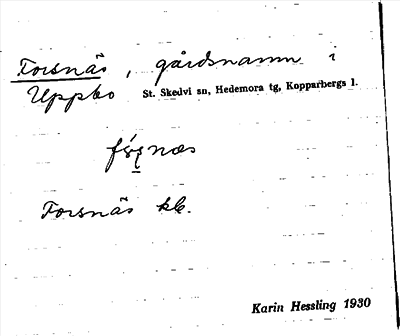 Forsnäs, gårdsnamn i
Uppbo St. Skedvi sn, Hedemora tg, Kopparbergs l.
Forsnäs kb.
Karin Hessling 1930